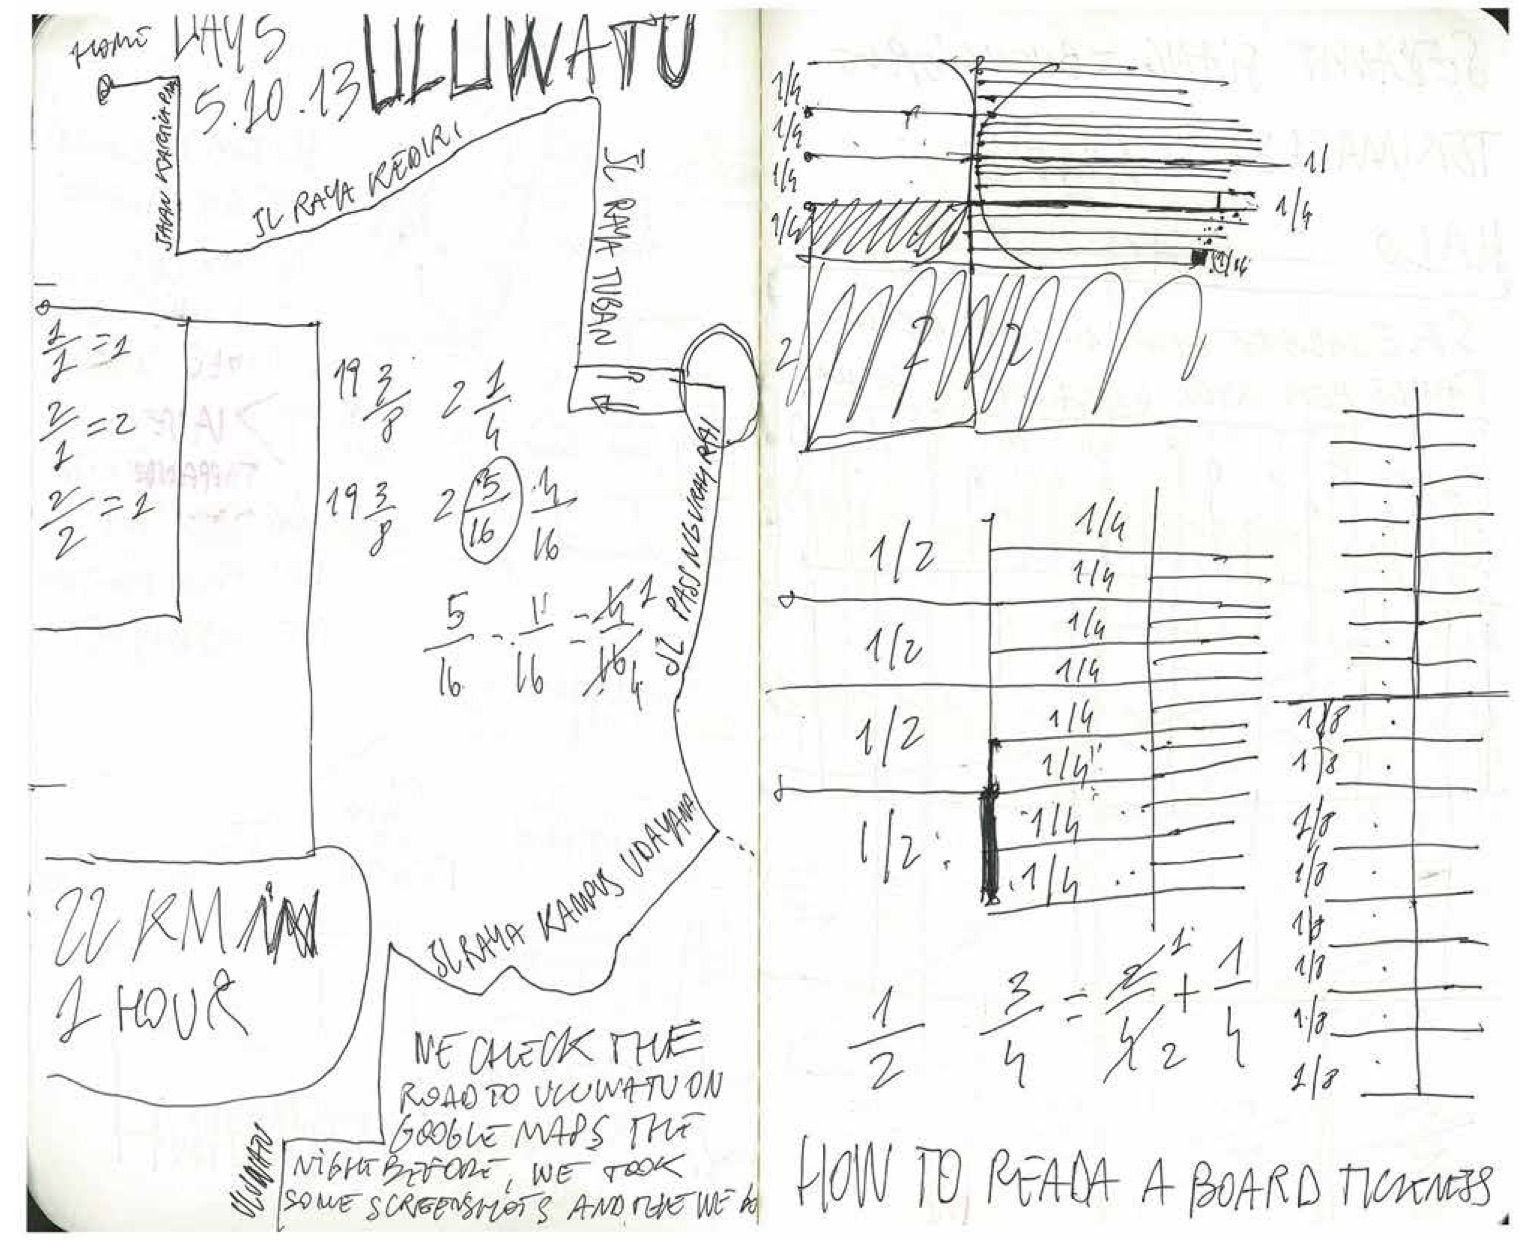 HOME DAYS ULUWATU
5.10.13
JL RAYA KEDIRI
JL RAYA TUBAN
1/1 = 1
2/1 = 2
2/2 = 1
19 3/8 2 1/4
19 3/8 2 5/16 4/16
5/16 - 11/16 = 4/16 1 4
JL RAYA KAMPUS UDAYANA
22 KM IN
1 HOUR
WE CHECK THE
ROAD TO ULUWATU ON
GOOGLE MAPS THE
NIGHT BEFORE, WE TOOK
SOME SCREENSHOTS AND THE WE
ULUWATU
1/4
1/4
1/4
1/4
11
1/4
2
2
2
1/2
1/2
1/2
1/2
1/4
1/4
1/4
1/4
1/4
1/4
1/4
1/4
1/8
1/8
1/8
1/8
1/8
1/8
1/8
1/8
1/2 3/4 = 2/4 1 2 + 1/4
HOW TO READA A BOARD TICKNESS